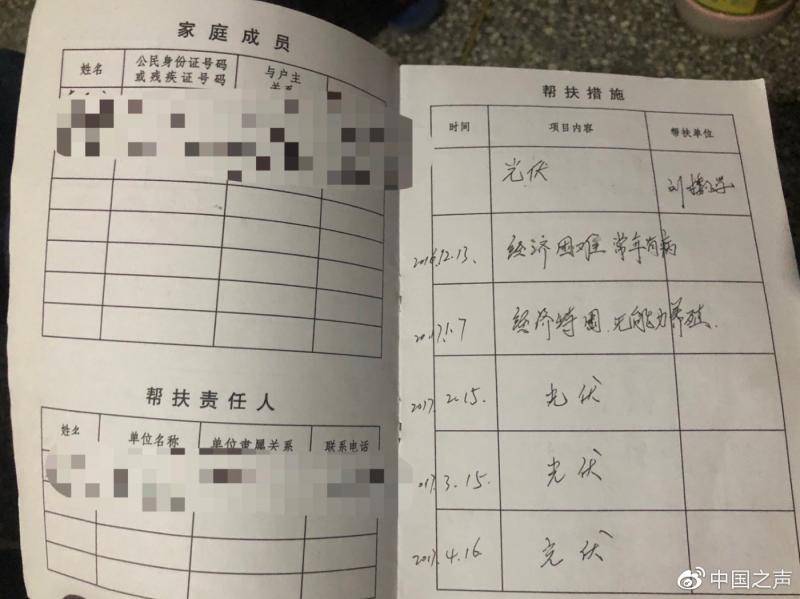 家庭成员
姓名 公民身份证号码 与户主
或残疾证号码 关系
帮扶责任人
姓名 单位名称 单位隶属关系 联系电话
帮扶措施
时间 项目内容 帮扶单位
光伏
2016.12.13、 经济困难 常年有病
2017.1.7 经济特困、无能力养殖.
2017. 2.15. 光伏
2017.3.15. 光伏
2017.4.16 光伏
中国之声